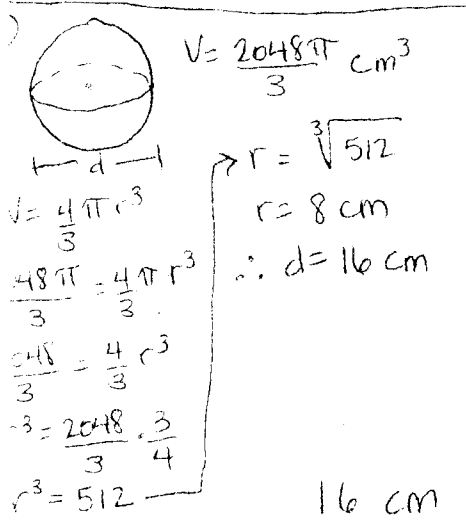 )
V = 2048π/3 cm³
d
V = 4/3 π r³
48π/3 = 4/3 π r³
048/3 = 4/3 r³
³ = 2048/3 · 3/4
r³ = 512
→ r = ∛512
r = 8 cm
∴ d = 16 cm
16 cm